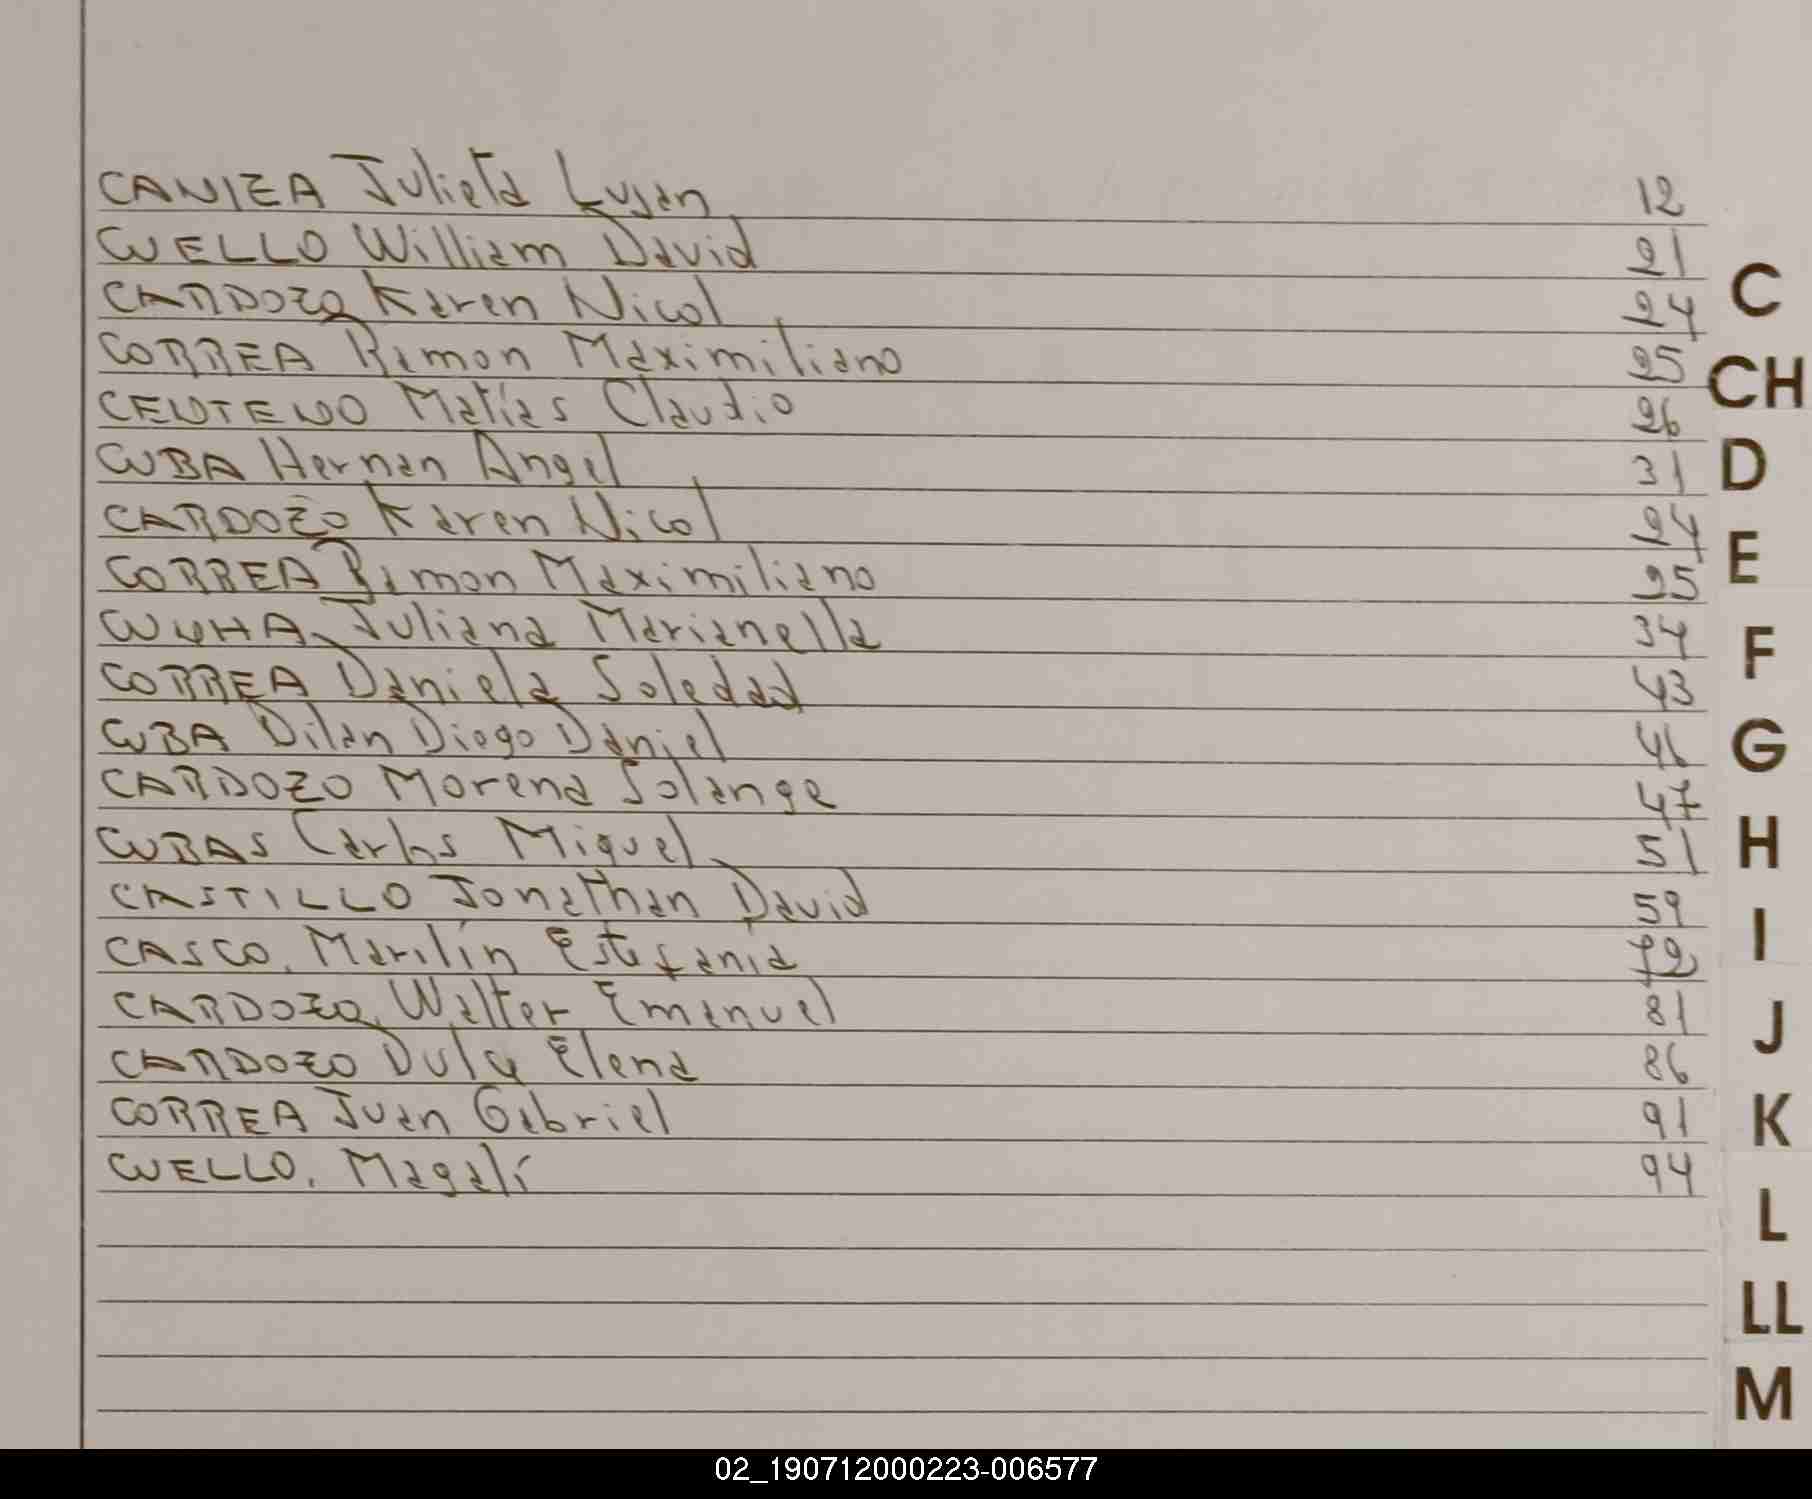 CANIZA Julieta Lujan 12
CUELLO William David 21
CARDOZO Karen Nicol 24
CORREA Ramon Maximiliano 25
CENTENO Matías Claudio 26
CUBA Hernan Angel 31
CARDOZO Karen Nicol 24
CORREA Ramon Maximiliano 25
CUNHA Juliana Marianella 34
CORREA Daniela Soledad 43
CUBA Dilan Diego Daniel 46
CARDOZO Morena Solange 47
CUBAS Carlos Miguel 51
CASTILLO Jonathan David 59
CASCO, Marilín Estefania 72
CARDOZO, Walter Emanuel 81
CARDOZO Dulce Elena 86
CORREA Juan Gabriel 91
CUELLO, Magalí 94
C
CH
D
E
F
G
H
I
J
K
L
LL
M
02_190712000223-006577